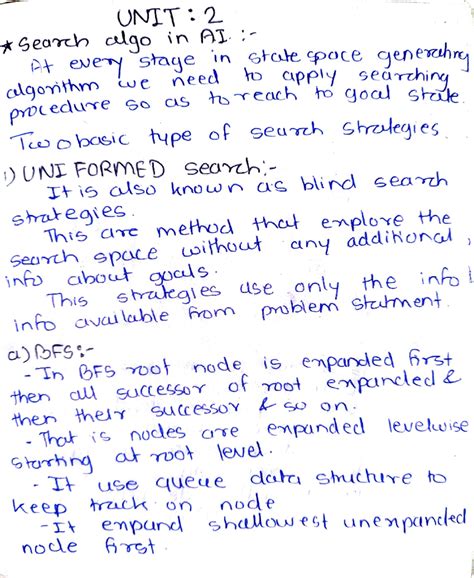 UNIT : 2
* Search algo in AI :-
At every stage in state space generating
algorithm we need to apply searching
procedure so as to reach to goal state.
Two basic type of search strategies.
i) UNI FORMED search:-
It is also known as blind search
strategies.
This are method that explore the
search space without any additional,
info about goals.
This strategies use only the info
info available from problem statment.
a) BFS :-
- In BFS root node is expanded first
then all successor of root expanded &
then their successor & so on.
- That is nodes are expanded levelwise
starting at root level.
- It use queue data structure to
keep track on node
- It expand shallowest unexpanded
node first.